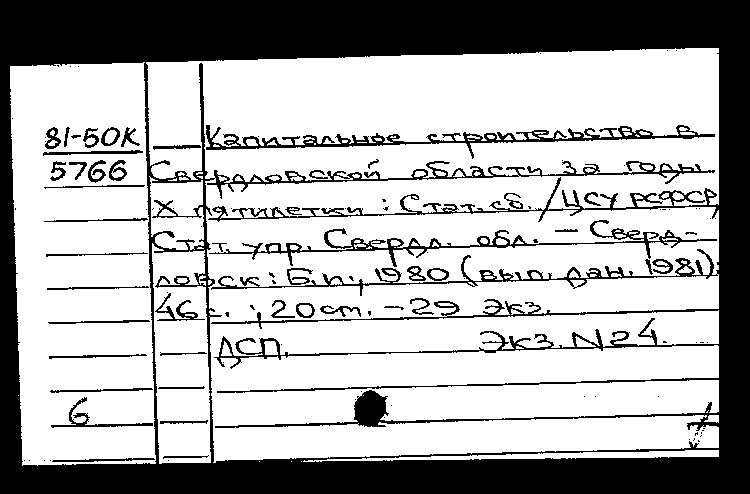 81-50К Капитальное строительство в
5766 Свердловской области за годы
X пятилетки : Стат. сб. / ЦСУ РСФСР,
Стат. упр. Свердл. обл. – Сверд-
ловск : Б.и., 1980 (вып. дан. 1981).
46 с. ; 20 см. – 29 экз.
ДСП. Экз. N24.
6